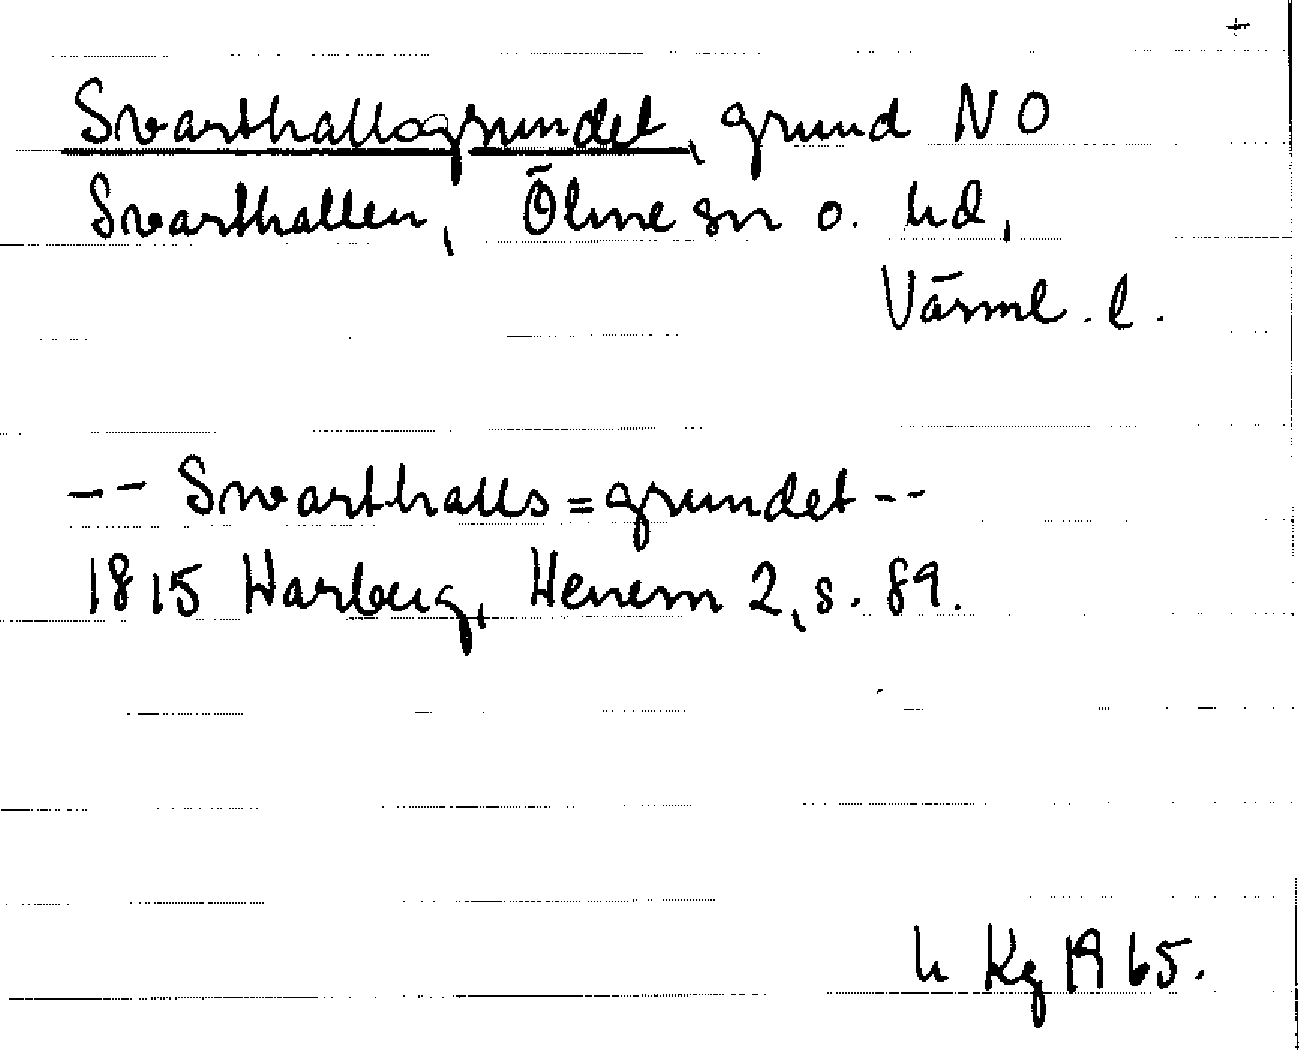 +
Svarthallsgrundet, grund NO
Svarthallen, Ölme sn o. hd,
Värml. l.
-- Swarthalls=grundet --
1815 Warberg, Wenern 2, s. 89.
h Kg 1965.